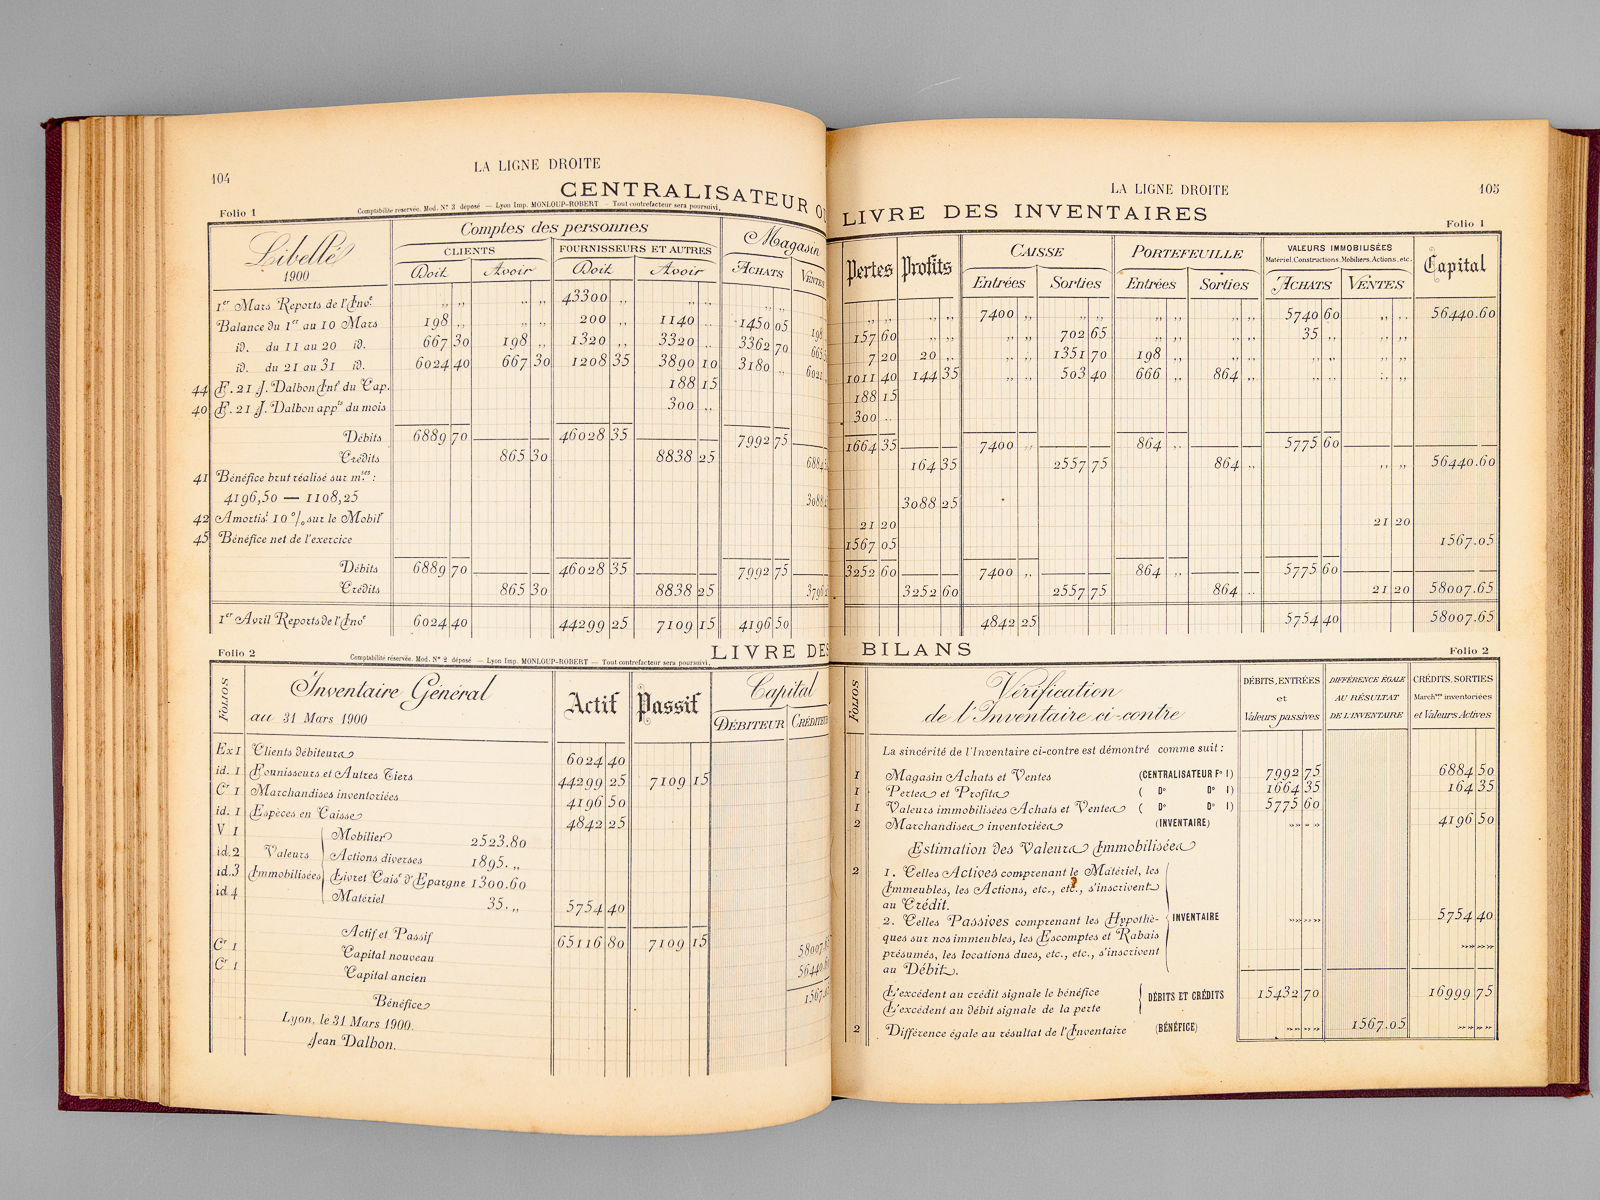 104
LA LIGNE DROITE
CENTRALISATEUR OU
Folio 1
Comptabilité réservée. Mod. Nº 3 déposé — Lyon Imp. MONLOUP-ROBERT — Tout contrefacteur sera poursuivi.
Libellé
1900
Comptes des personnes
Magasin
CLIENTS
FOURNISSEURS ET AUTRES
Doit Avoir Doit Avoir ACHATS VENTES
1er Mars Reports de l'Inve „ „ „ „ 43300 „ „ „ „ „
Balance du 1er au 10 Mars 198 „ „ „ 200 „ 1140 .. 1450 05
id. du 11 au 20 id. 667 30 198 „ 1320 „ 3320 .. 3362 70
id. du 21 au 31 id. 6024 40 667 30 1208 35 3890 10 3180 „
44 F. 21 J. Dalbon Int. du Cap. 188 15
40 F. 21 J. Dalbon appts du mois 300 ..
Débits 6889 70 46028 35 7992 75
Crédits 865 30 8838 25
41 Bénéfice brut réalisé sur mses :
4196,50 — 1108,25
42 Amortist 10 % sur le Mobilr
45 Bénéfice net de l'exercice
Débits 6889 70 46028 35 7992 75
Crédits 865 30 8838 25
1er Avril Reports de l'Inve 6024 40 44299 25 7109 15 4196 50
Folio 2
Comptabilité réservée. Mod. Nº 2 déposé — Lyon Imp. MONLOUP-ROBERT — Tout contrefacteur sera poursuivi.
LIVRE DES
FOLIOS
Inventaire Général
au 31 Mars 1900
Actif
Passif
Capital
DÉBITEUR CRÉDITEUR
Ex 1 Clients débiteurs 6024 40
id. 1 Founisseurs et Autres Tiers 44299 25 7109 15
Cr 1 Marchandises inventoriées 4196 50
id. 1 Espèces en Caisse 4842 25
V 1 Mobilier 2523.80
id. 2 Valeurs Actions diverses 1895. „
id. 3 Immobilisées Livret Caise d'Epargne 1300.60
id 4 Matériel 35. „ 5754 40
Actif et Passif 65116 80 7109 15
Cr 1 Capital nouveau
Cr 1 Capital ancien
Bénéfice
Lyon, le 31 Mars 1900.
Jean Dalbon.
LA LIGNE DROITE
105
LIVRE DES INVENTAIRES
Folio 1
Pertes
Profits
CAISSE
PORTEFEUILLE
VALEURS IMMOBILISÉES
Matériel, Constructions, Mobiliers, Actions, etc.
Capital
Entrées Sorties Entrées Sorties ACHATS VENTES
„ „ „ „ 7400 „ „ „ „ „ „ „ 5740 60 „ .. 56440.60
157 60 „ „ „ „ 702 65 „ „ „ „ 35 „ „ „
7 20 20 „ „ „ 1351 70 198 „ „ „ „ „ „ „
1011 40 144 35 „ „ 503 40 666 „ 864 „ „ „ „ „
188 15
300 ..
1664 35 7400 „ 864 „ 5775 60
164 35 2557 75 864 „ „ „ 56440.60
3088 25
21 20 21 20
1567 05 1567.05
3252 60 7400 „ 864 „ 5775 60
3252 60 2557 75 864 .. 21 20 58007.65
4842 25 5754 40 58007.65
BILANS
Folio 2
FOLIOS
Vérification
de l'Inventaire ci-contre
DÉBITS, ENTRÉES
et
Valeurs passives
DIFFÉRENCE ÉGALE
AU RÉSULTAT
DE L'INVENTAIRE
CRÉDITS, SORTIES
Marchses inventoriées
et Valeurs Actives
La sincérité de l'Inventaire ci-contre est démontré comme suit :
1 Magasin Achats et Ventes (CENTRALISATEUR Fº 1) 7992 75 6884 50
1 Pertes et Profits ( Dº Dº 1) 1664 35 164 35
1 Valeurs immobilisées Achats et Ventes ( Dº Dº 1) 5775 60
2 Marchandises inventoriées (INVENTAIRE) »» »» 4196 50
Estimation des Valeurs Immobilisées
2 1. Celles Actives comprenant le Matériel, les
Immeubles, les Actions, etc., etc., s'inscrivent
au Crédit.
INVENTAIRE »» »» 5754 40
2. Celles Passives comprenant les Hypothè-
ques sur nos immeubles, les Escomptes et Rabais
présumés, les locations dues, etc., etc., s'inscrivent »» »»
au Débit.
L'excédent au crédit signale le bénéfice
DÉBITS ET CRÉDITS 15432 70 16999 75
L'excédent au débit signale de la perte
2 Différence égale au résultat de l'Inventaire (BÉNÉFICE) »» »» 1567.05 »» »»